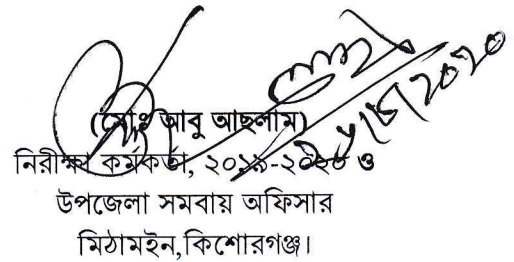 (মোঃ আবু আছলাম)
নিরীক্ষা কর্মকর্তা, ২০১৯-২০২০ ও
উপজেলা সমবায় অফিসার
মিঠামইন,কিশোরগঞ্জ।